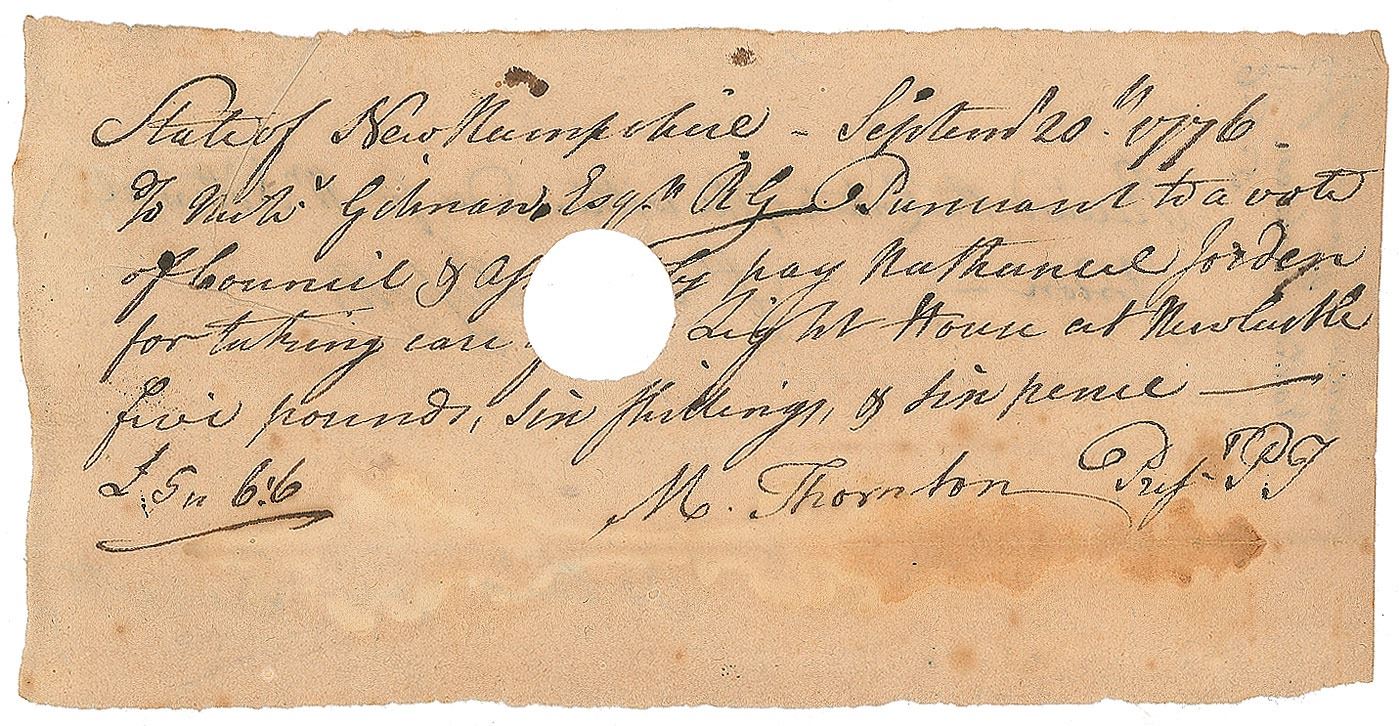 State of New Hampshire - Septemr 20th 1776
To Nichs Gilman, Esqr R G Pursuant to a vote
of Council & Ass ly pay Nathaniel Jorden
for taking care Light House at Newcastle
five pounds, six shillings, & six pence —
£ 5 " 6 : 6
M. Thornton Prest P T